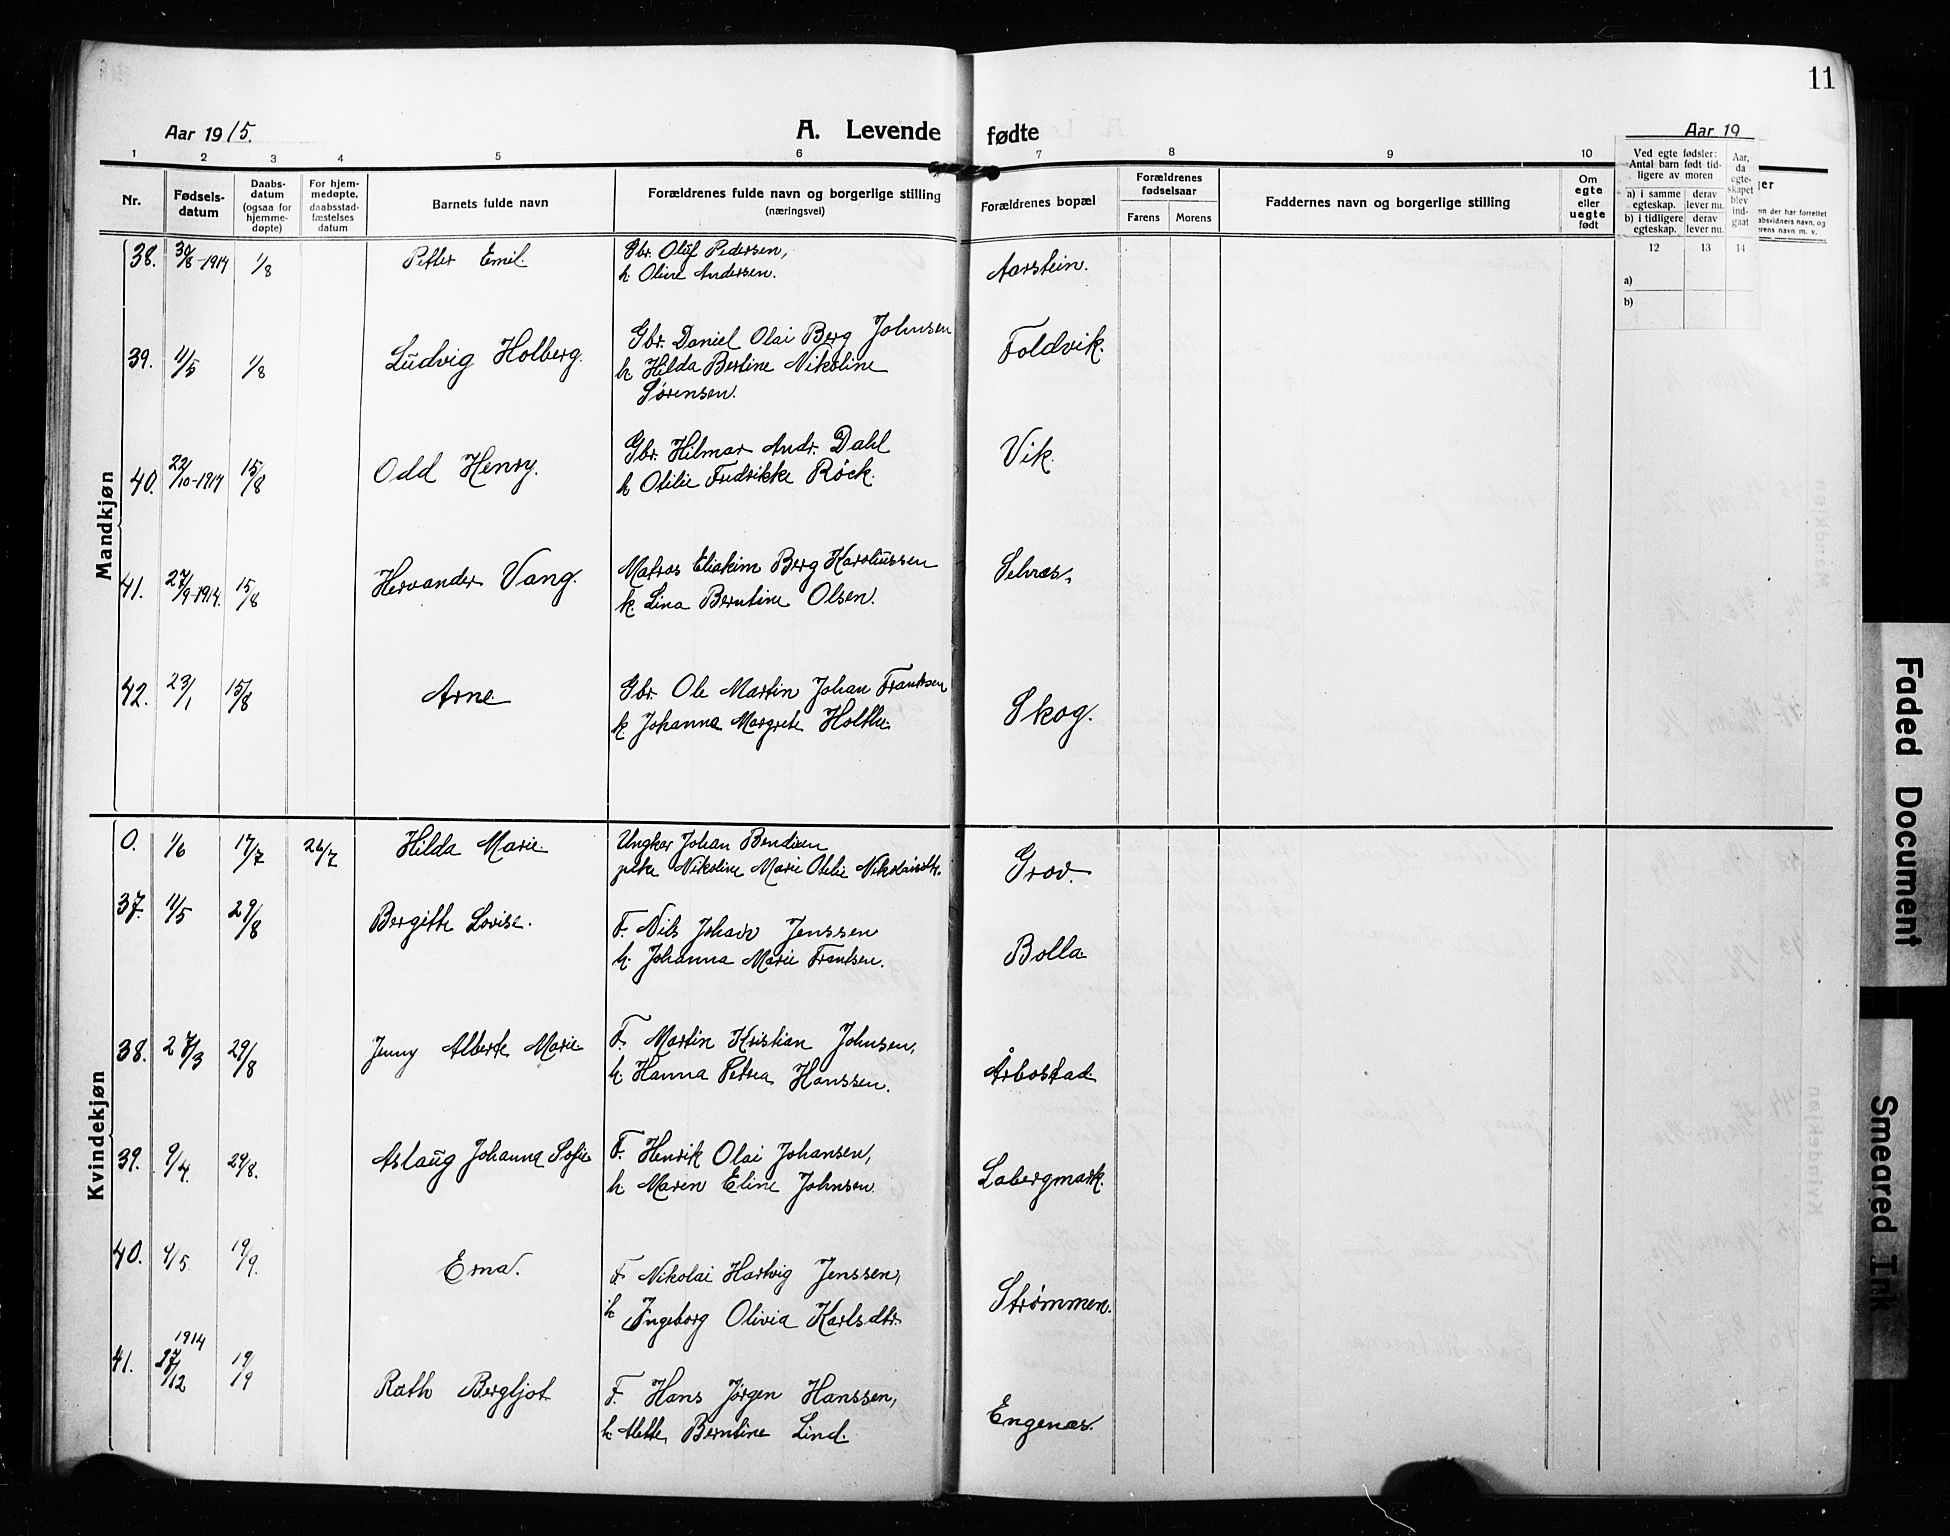 11
Aar 1915.
A. Levende fødte
Aar 19
1 2 3 4 5 6 7 8 9 10
Nr.
Fødsels-
datum
Daabs-
datum
(ogsaa for
hjemme-
døpte)
For hjem-
medøpte,
daabsstad-
fæstelses
datum
Barnets fulde navn
Forældrenes fulde navn og borgerlige stilling
(næringsvei)
Forældrenes bopæl
Forældrenes
fødselsaar
Farens Morens
Faddernes navn og borgerlige stilling
Om
egte
eller
uegte
født
Ved egte fødsler:
Antal barn født tid-
ligere av moren
a) i samme
egteskap.
derav
lever nu.
b) i tidligere
egteskap.
derav
lever nu.
Aar,
da
egte-
skapet
blev
ind-
gaat
12 13 14
a)
b)
ger
en der har forrettet
absvidners navn, og
erens navn m. v.
Mandkjøn
38. 30/8-1914 1/8 Petter Emil. Gbr. Oluf Pedersen, Aarstein.
h. Oline Andersen.
39. 11/5 1/8 Ludvig Holberg. Gbr. Daniel Olai Berg Johnsen Foldvik.
h Hilda Bertine Nikoline
Sørensen.
40. 22/10-1914 15/8 Odd Henry. Gbr. Hilmar Andr. Dahl Vik.
h Otilie Fredrikke Röck.
41. 27/9-1914. 15/8 Hervander Vang. Matros Eliakim Berg Karoliussen Selnæs.
k. Lina Berntine Olsen.
42. 23/1 15/8 Arne. Gbr. Ole Martin Johan Frantsen Skog.
k. Johanna Margrete Holthe.
Kvindekjøn
0. 1/6 17/7 26/7 Hilda Marie. Ungkar Johan Bendixen Grov.
pike Nikoline Marie Otilie
37. 11/5 29/8 Bergitte Lovise. F. Nils Johan Jenssen Bolla
h. Johanna Marie Frantsen.
38. 27/3 29/8 Jenny Alberte Marie F. Martin Kristian Johnsen, Årbostad.
h. Hanna Petrea Hanssen.
39. 9/4. 29/8. Aslaug Johanna Sofie F. Henrik Olai Johansen, Labergmark.
h Maren Eline Johnsen.
40. 9/5. 19/9. Erna. F. Nikolai Hartvig Jenssen, Strømmen.
h Ingeborg Olivia Karlsdtr.
41. 1914 27/12 19/9 Ruth Bergljot F. Hans Jørgen Hanssen, Engenæs.
h. Mette Berntine Lind.
Faded Document
Smeared Ink